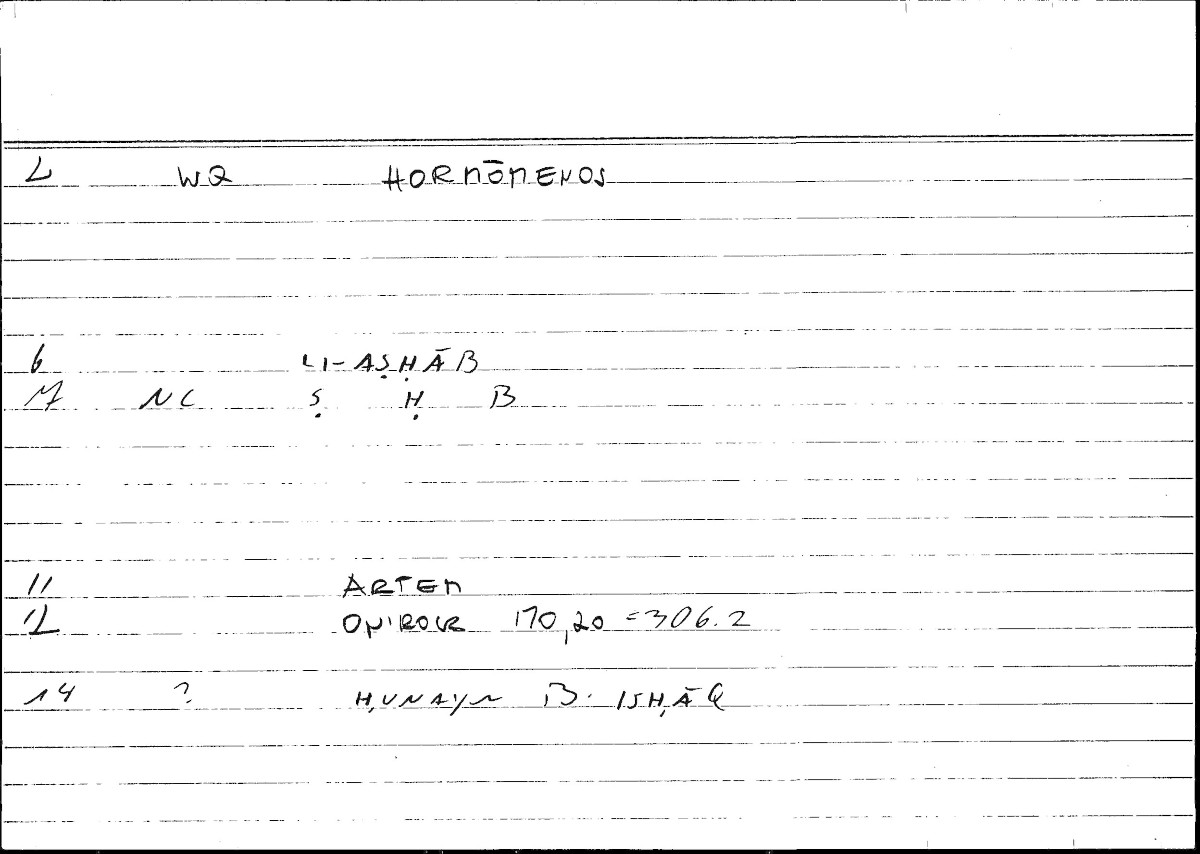 2 WQ HORMŌMENOS
6 LI-AṢḤĀB
7 NC Ṣ Ḥ B
11 ARTEM
12 ONIROCR 170,20 =306.2
14 ? ḤUNAYN B. ISḤĀQ